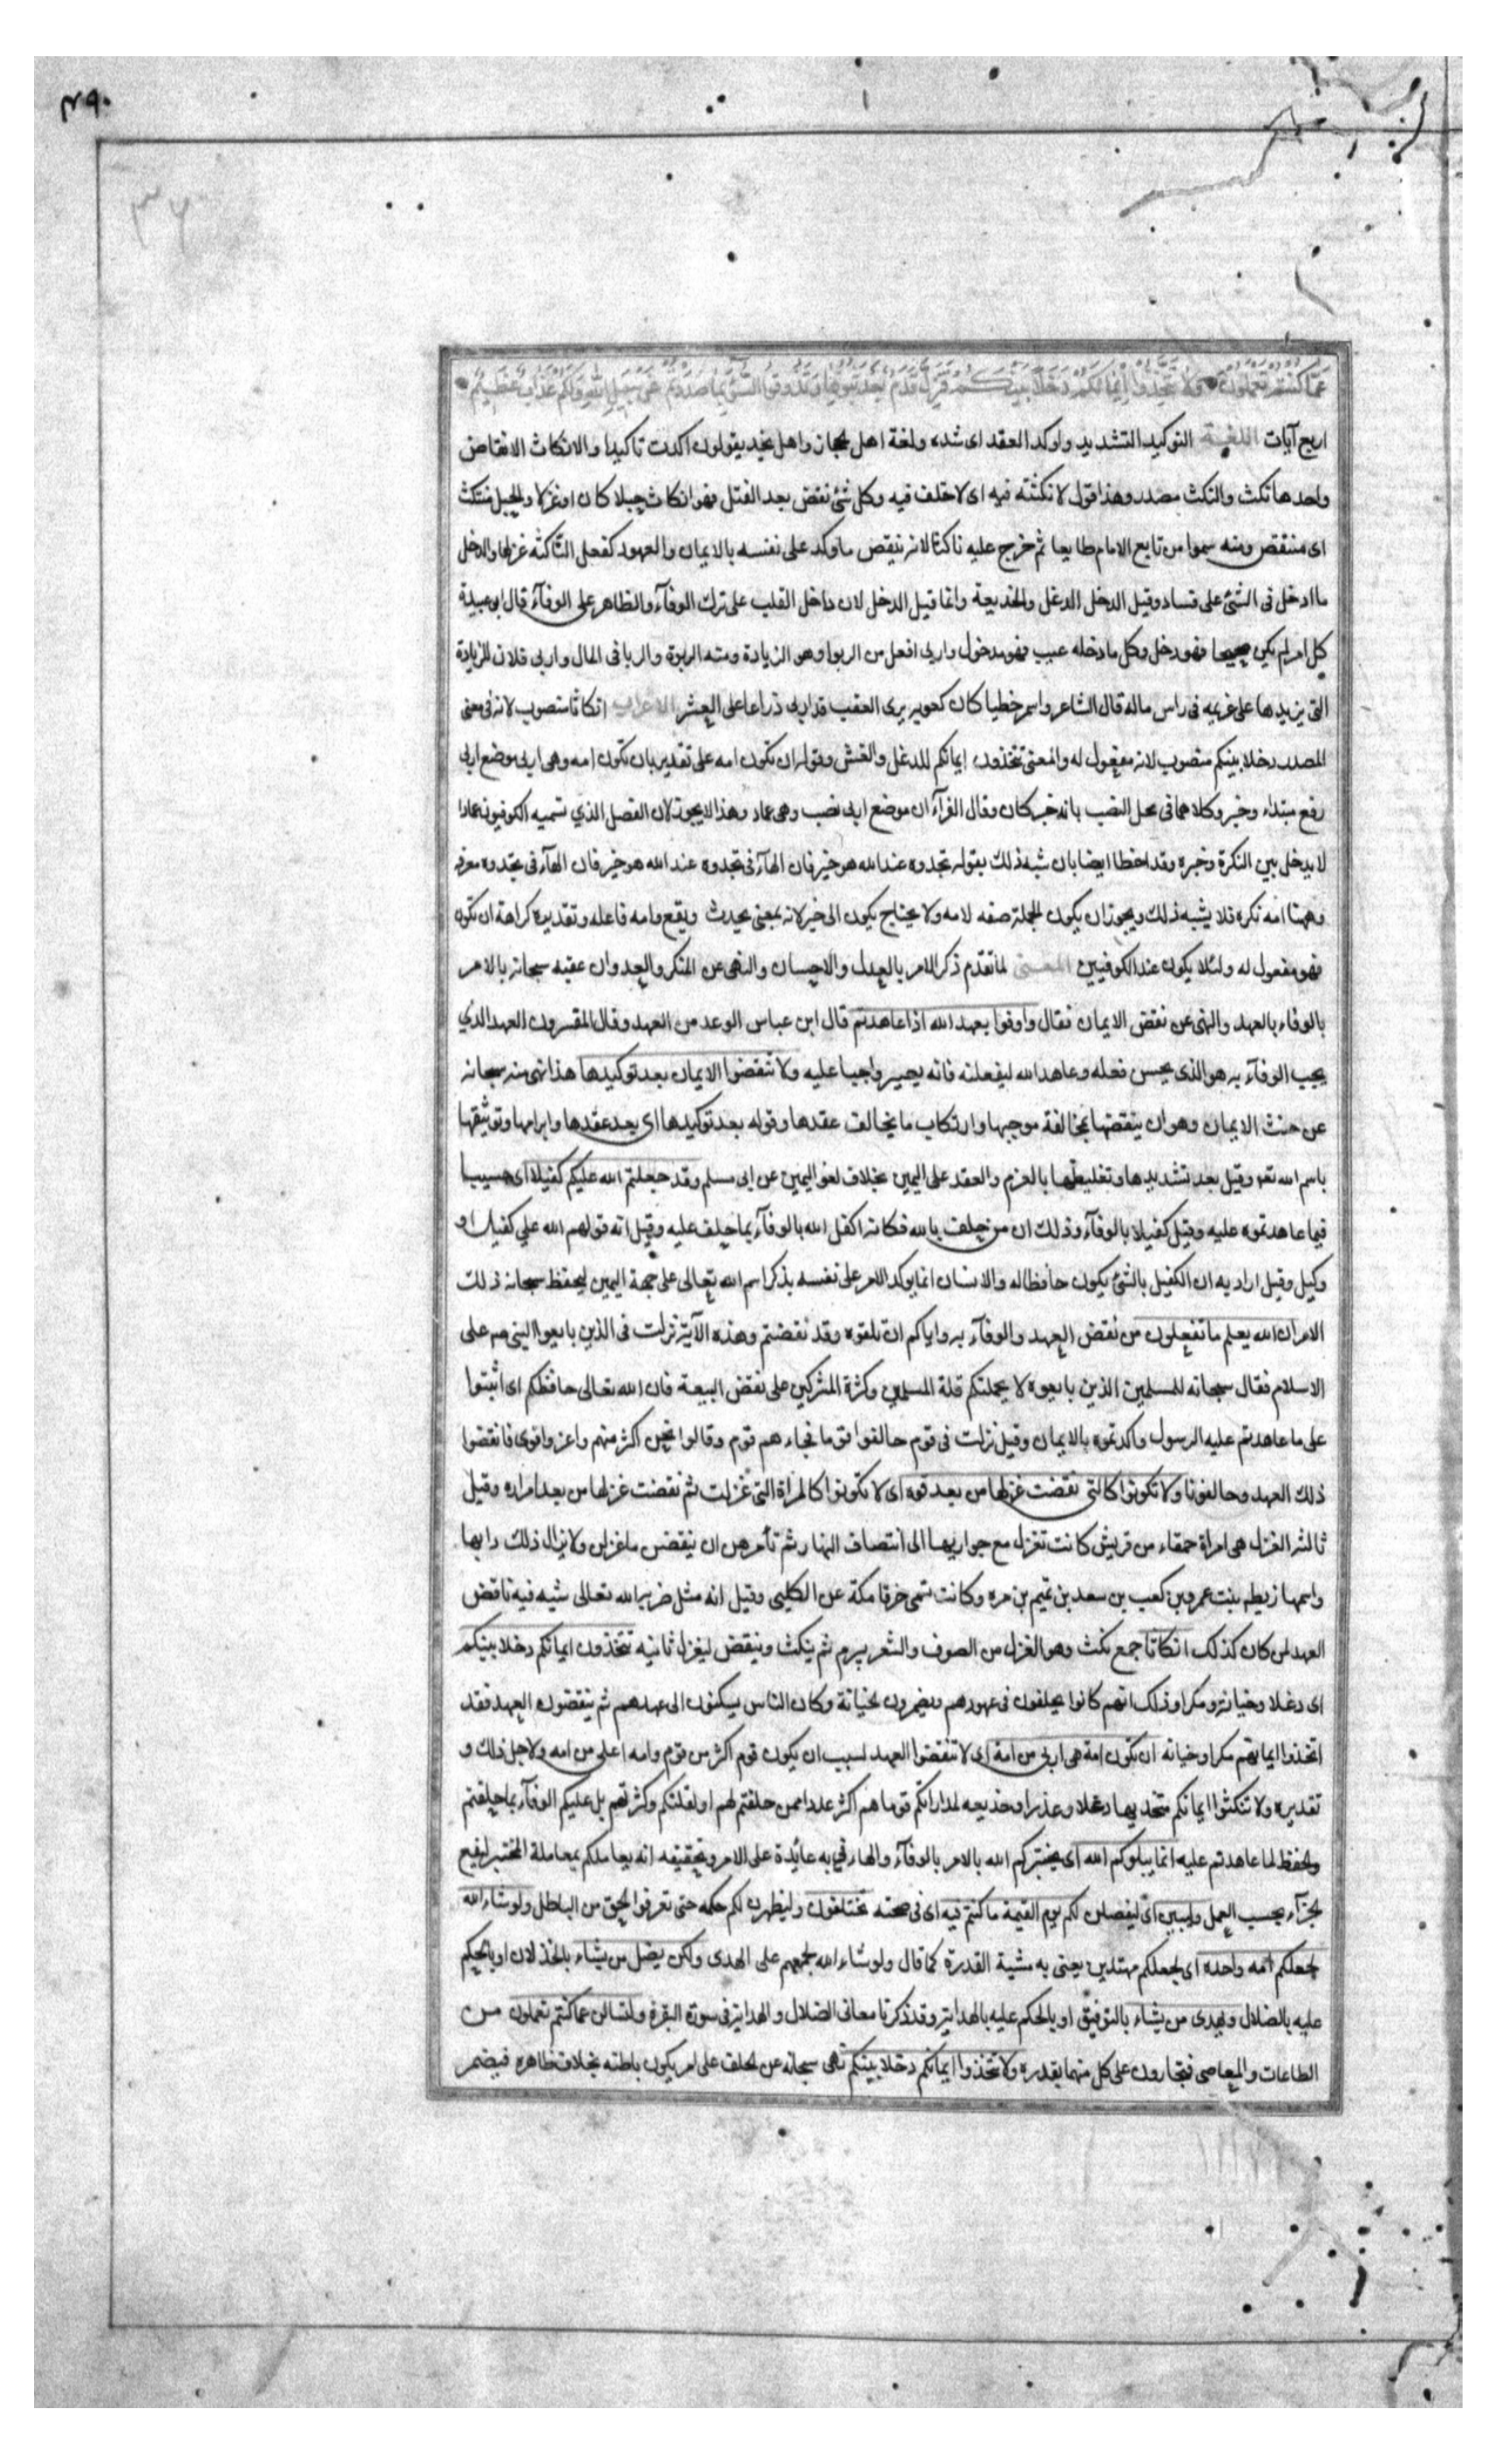 ٢٩٠
٣٦
عَمَّا كُنْتُمْ تَعْمَلُونَ وَلَا تَتَّخِذُوا اَيْمَانَكُمْ دَخَلًا بَيْنَكُمْ فَتَزِلَّ قَدَمٌ بَعْدَ ثُبُوتِهَا وَتَذُوقُوا السُّوءَ بِمَا صَدَدْتُمْ عَنْ سَبِيلِ اللَّهِ وَلَكُمْ عَذَابٌ عَظِيمٌ
اربع آيات اللغـة التوكيد التشديد واوكد العقد اى شده ولغة اهل الحجاز واهل نجد يقولون اكدت تاكيدا والانكاث الانقاض
واحدها نكث والنكث مصدر وهذا قول لا نكثته فيه اى لا خلف فيه وكل شئ نقض بعد الفتل فهو انكاث حبلا كان او غزلا والحبل منتكث
اى منتقض ومنه سموا من تابع الامام طايعا ثم خرج عليه ناكثا لانه نتيقض ما وكد على نفسه بالايمان والعهود كفعل الناكثه غزلها والدخل
ما ادخل فى الشئ على فساد وقيل الدخل الدغل والخديعة وانما قيل الدخل لان داخل القلب على ترك الوفآء والظاهر على الوفآء قال ابو عبيدة
كل امر لم يكن صحيحا فهو دخل وكل ما دخله عيب فهو مدخول واربى افعل من الربوا وهو الزيادة ومنه الربوة والربا فى المال واربى فلان للزيادة
التى يزيدها على غريمه فى راس ماله قال الشاعر واسمر خطيا كان كعوبه يرى العقب قد اربى ذراعا على العشر الاعراب انكاثا منصوب لانه فى معنى
المصدر دخلا بينكم منصوب لانه مفعول له والمعنى تتخذون ايمانكم للدغل والغش وقوله ان تكون امه على تقدير بان تكون امه وهى اربى موضع اربى
رفع مبتداء وخبر وكلاهما فى محل النصب بانه خبر كان وقال الفرآء ان موضع اربى نصب وهى عماد وهذا لا يجوز لان الفصل الذي تسميه الكوفيون عمادا
لا يدخل بين النكرة وخبره وقد اخطا ايضا بان شبه ذلك بقوله تجدوه عند الله هو خير فان الهآء فى تجدوه عند الله هو خير فان الهآء فى تجدوه معرفه
وههنا امه نكره فلا يشبه ذلك ويجوز ان يكون الجملة صفه لامه ولا يحتاج يكون الى خبر لانه بمعنى يحدث ويقع وامه فاعله وتقديره كراهة ان تكون
فهو مفعول له ولئلا يكون عند الكوفيين المعـنى لما تقدم ذكر الامر بالعدل والاحسان والنهى عن المنكر والعدوان عقبه سبحانه بالامر
بالوفاء بالعهد والنهى عن نقض الايمان فقال واوفوا بعهد الله اذا عاهدتم قال ابن عباس الوعد من العهد وقال المفسرون العهد الذي
يجب الوفآء به هو الذى يحسن فعله وعاهد الله ليفعلنه فانه يصير واجبا عليه ولا تنقضوا الايمان بعد توكيدها هذا نهى منه سبحانه
عن حنث الايمان وهو ان ينقضها بمخالفة موجبها وارتكاب ما يخالف عقدها وقوله بعد توكيدها اى بعد عقدها وابرامها وتوثيقها
باسم الله تعه وقيل بعد تشديدها وتغليظها بالعزم والعقد على اليمين بخلاف لغو اليمين عن ابى مسلم وقد جعلتم الله عليكم كفيلا اى حسيبا
فيما عاهدتموه عليه وقيل كفيلا بالوفآء وذلك ان من حلف بالله فكانه اكفل الله بالوفآء بما حلف عليه وقيل انه قولهم الله علي كفيل او
وكيل وقيل اراد به ان الكفيل بالشئ يكون حافظا له والانسان انما يوكد الامر على نفسه بذكر اسم الله تعالى على جهة اليمين ليحفظ سبحانه ذلك
الامر ان الله يعلم ما تفعلون من نقض العهد والوفآء به واياكم ان تلقوه وقد نقضتم وهذه الآية نزلت فى الذين بايعوا النبى صم على
الاسلام فقال سبحانه للمسلمين الذين بايعوه لا يحملنكم قلة المسلمين وكثرة المشركين على نقض البيعة فان الله تعالى حافظكم اى اثبتوا
على ما عاهدتم عليه الرسول واكدتموه بالايمان وقيل نزلت فى قوم حالفوا قوما فجاءهم قوم وقالوا نحن اكثر منهم واعز واقوى فانقضوا
ذلك العهد وحالفونا ولا تكونوا كالتى نقضت غزلها من بعد قوه اى لا تكونوا كالمراة التى غزلت ثم نقضت غزلها من بعد امراره وقيل
ثالثه الغزل هى امراة حمقاء من قريش كانت تغزل مع جواريها الى انتصاف النهار ثم تأمرهن ان ينقضن ما غزلن ولا يزال ذلك دابها
واسمها ريطه بنت عمرو بن كعب بن سعد بن تميم بن مره وكانت تسمى خرقا مكة عن الكلبى وقيل انه مثل ضربه الله تعالى شبه فيه ناقض
العهد لمن كان كذلك انكاثا جمع نكث وهو الغزل من الصوف والشعر يبرم ثم ينكث وينقض ليغزل ثانيه تتخذون ايمانكم دخلا بينكم
اى دغلا وخيانة ومكرا وذلك انهم كانوا يحلفون فى عهودهم ويضمرون لخيانة وكان الناس يسكنون الى عهدهم ثم ينقضون العهد فقد
اتخذوا ايمانهم مكرا وخيانه ان تكون امة هى اربى من امة اى لا تنقضوا العهد لسبب ان يكون قوم اكثر من قوم وامه اعلى من امه ولاجل ذلك و
تقديره ولا تنكثوا ايمانكم متخذيها دغلا وغدرا وخديعه لمداراتكم قوما هم اكثر عددا ممن حلفتم لهم او لقلتكم وكثرتهم بل عليكم الوفآء بما حلفتم
والحفظ لما عاهدتم عليه انما يبلوكم الله اى يختبركم الله بالامر بالوفآء والهاء فى به عائدة على الامر وتحقيقه انه يعاملكم بمعاملة المختبر ليقع
لجزآء بحسب العمل وليبين اى ليفصلن لكم يوم القيمة ما كنتم فيه اى فى صحته تختلفون وليظهرن لكم حكمه حتى تعرفوا الحق من الباطل ولو شاء الله
لجعلكم امه واحده اى لجعلكم مهتدين يعنى به مشية القدرة كما قال ولو شاء الله لجمعهم على الهدى ولكن يضل من يشاء بالخذلان او بالحكم
عليه بالضلال ويهدى من يشاء بالتوفيق او بالحكم عليه بالهداية وقد ذكرنا معانى الضلال والهداية فى سورة البقرة ولتسالن عما كنتم تعملون من
الطاعات والمعاصى فتجازون على كل منهما بقدره ولا تتخذوا ايمانكم دخلا بينكم نهى سبحانه عن الحلف على امر يكون باطنه بخلاف ظاهره فيضمر